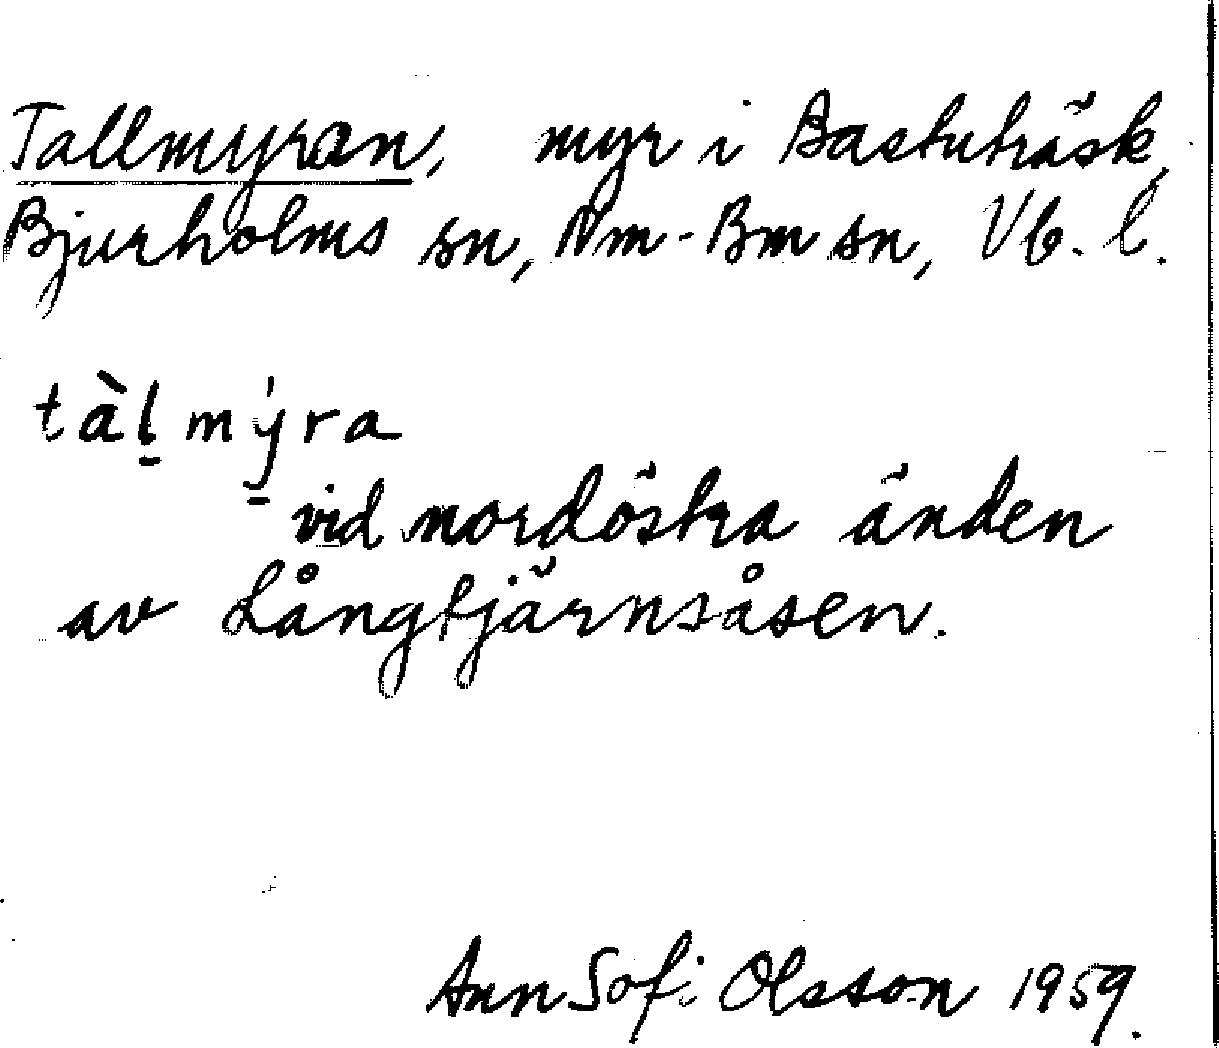 Tallmyran, myr i Bastuträsk,
Bjurholms sn, Nm-Bm sn, Vb. l.
tàl̠mý̠ra
vid nordöstra änden
av Långtjärnsåsen.
Ann Sofi Olsson 1959.